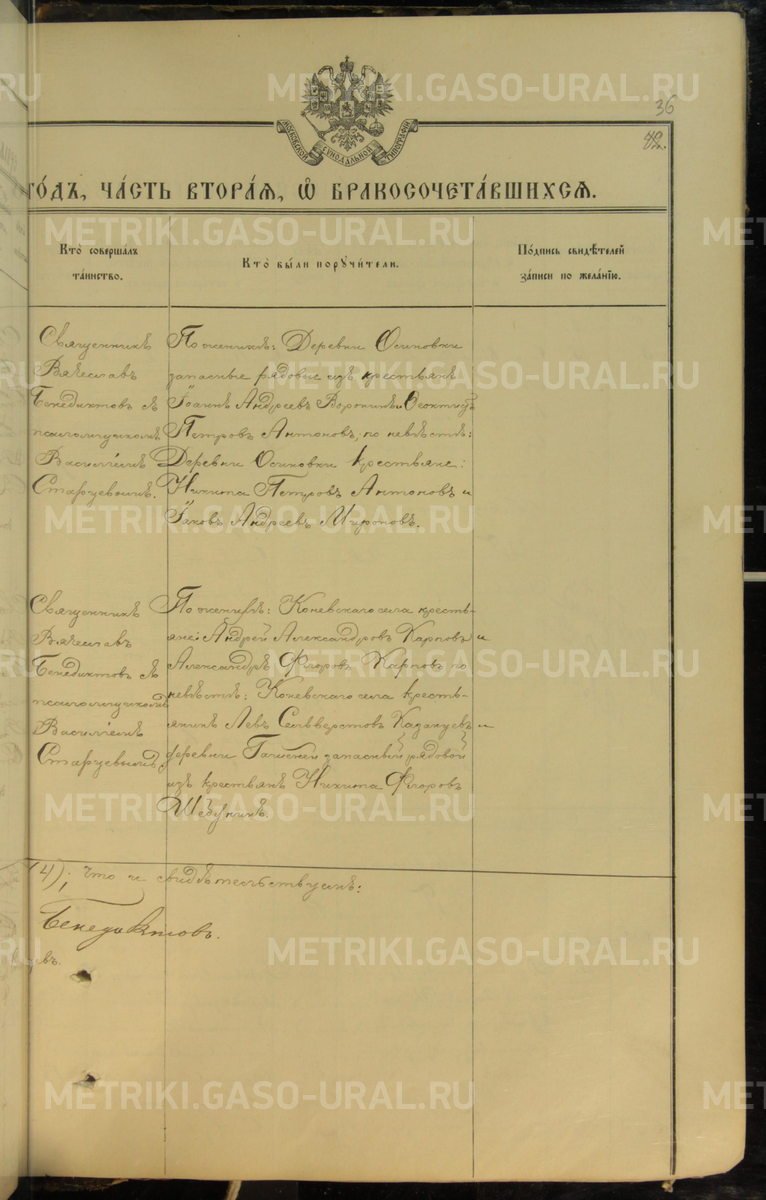 METRIKI.GASO-URAL.RU
36
МОСКОВСКОЙ СѴНОДАЛЬНОЙ ТИПОГРАФІИ
ГОДЪ, ЧАСТЬ ВТОРАЯ, Ѿ БРАКОСОЧЕТАВШИХСЯ.
Кто совершалъ
таинство.
Кто были поручители.
Подпись свидѣтелей
записи по желанію.
Священникъ
Вячеслав
Бенедиктовъ съ
псаломщикомъ
Василіемъ
Старцевымъ.
По женихѣ: Деревни Осиновки
запасные рядовые изъ крестьянъ
Іоаннъ Андреевъ Воронинъ и Ѳеоктистъ
Петровъ Антоновъ, по невѣстѣ:
Деревни Осиновки крестьяне:
Никита Петровъ Антоновъ и
Іаковъ Андреевъ Мироновъ.
Священникъ
Вячеславъ
Бенедиктовъ съ
псаломщикомъ
Василіемъ
Старцевымъ
По женихѣ: Коневскаго села кресть-
яне: Андрей Александровъ Карповъ и
Александръ Ѳедоровъ Карповъ по
невѣстѣ: Коневскаго села кресть-
янинъ Левъ Селиверстовъ и
деревни запасный рядовой
изъ крестьянъ Никита Ѳедоровъ
4), что и свидѣтельствуемъ:
Бенедиктовъ.